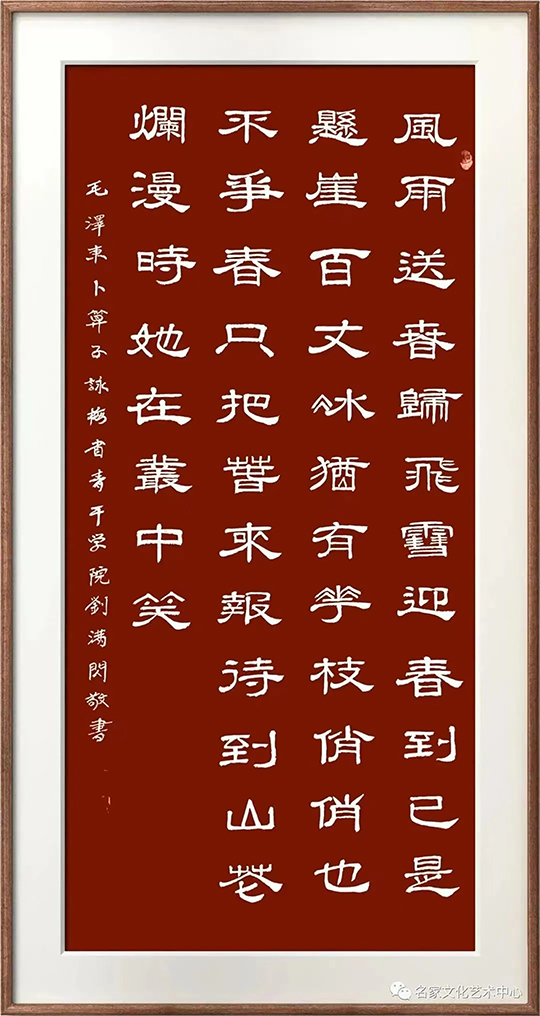 風雨送春歸飛雪迎春到已是
懸崖百丈冰猶有花枝俏俏也
不爭春只把春來報待到山花
爛漫時她在叢中笑
毛澤東卜算子詠梅省青干学院劉满閃敬書
名家文化艺术中心